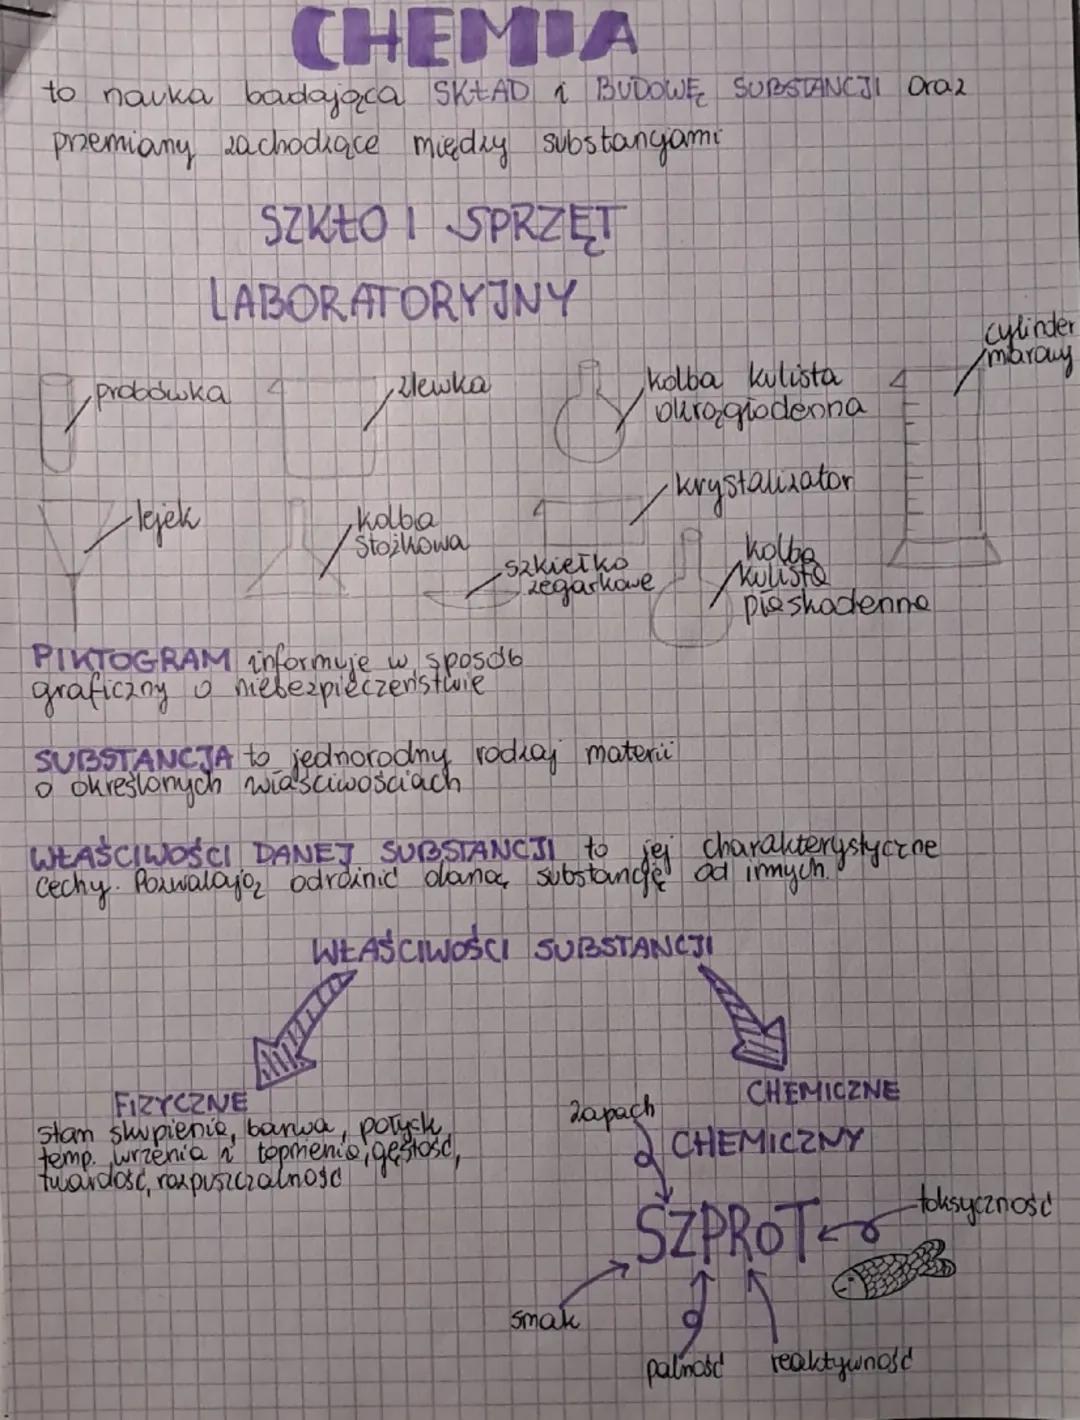 CHEMIA
to nauka badająca SKŁAD i BUDOWĘ SUBSTANCJI oraz
przemiany zachodzące między substancjami
SZKŁO I SPRZĘT
LABORATORYJNY
cylinder
miarowy
probówka
zlewka
kolba kulista
okrągłodenna
krystalizator
lejek
kolba
stożkowa
szkiełko
zegarkowe
kolba
kulista
płaskodenna
PIKTOGRAM informuje w sposób
graficzny o niebezpieczeństwie
SUBSTANCJA to jednorodny rodzaj materii
o określonych właściwościach
WŁAŚCIWOŚCI DANEJ SUBSTANCJI to jej charakterystyczne
cechy. Pozwalają odróżnić daną substancję od innych.
WŁAŚCIWOŚCI SUBSTANCJI
FIZYCZNE
stan skupienia, barwa, połysk,
temp. wrzenia i topnienia, gęstość,
twardość, rozpuszczalność
CHEMICZNE
zapach
CHEMICZNY
SZPROT
toksyczność
smak
palność
reaktywność